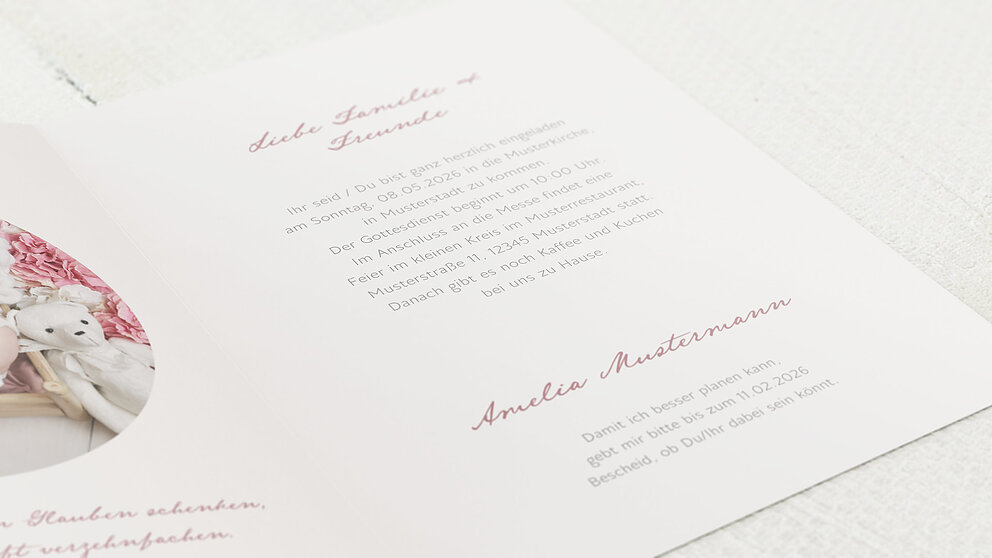 Liebe Familie &
Freunde
Ihr seid / Du bist ganz herzlich eingeladen
am Sonntag, 08.05.2026 in die Musterkirche,
in Musterstadt zu kommen.
Der Gottesdienst beginnt um 10:00 Uhr.
Im Anschluss an die Messe findet eine
Feier im kleinen Kreis im Musterrestaurant,
Musterstraße 11, 12345 Musterstadt statt.
Danach gibt es noch Kaffee und Kuchen
bei uns zu Hause.
Amelia Mustermann
Damit ich besser planen kann,
gebt mir bitte bis zum 11.02.2026
Bescheid, ob Du/Ihr dabei sein könnt.
Glauben schenken,
verzehnfachen.